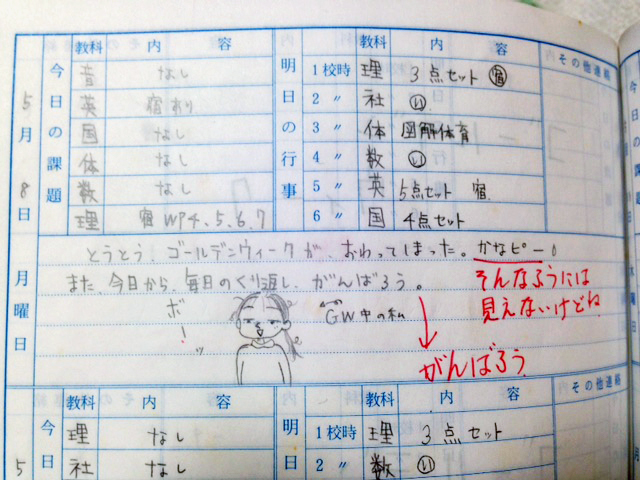 教科 内 容 教科 内 容 その他連絡
今日の課題 明日の行事
5月8日
音 なし 1校時 理 3点セット 宿
英 宿 ワリ 2 〃 社 い
国 なし 3 〃 体 図解体育
体 なし 4 〃 数 い
数 なし 5 〃 英 5点セット 宿
理 宿 WP4、5、6、7 6 〃 国 4点セット
月曜日
とうとう、ゴールデンウィークが、おわってしまった。かなピー。
また、今日から、毎日のくり返し、がんばろう。
そんなふうには
見えないけどね
ボ!ッ
GW中の私
がんばろう
教科 内 容 教科 内 容 その他
今日 明日
5
理 なし 1校時 理 3点セット
社 なし 2 〃 数 い